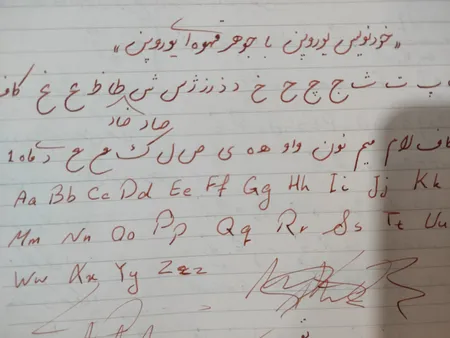 «خودنویس یوروپن با جوهر قهوه‌ای یوروپن»
پ ت ث ج چ ح خ د ذ ر ز ژ س ش ط ظ ع غ کاف
صاد ضاد
کاف لام میم نون واو هه ی ص ل ک ع ع
Aa Bb Cc Dd Ee Ff Gg Hh Ii Jj Kk
Mm Nn Oo Pp Qq Rr Ss Tt Uu
Ww Xx Yy Zzz